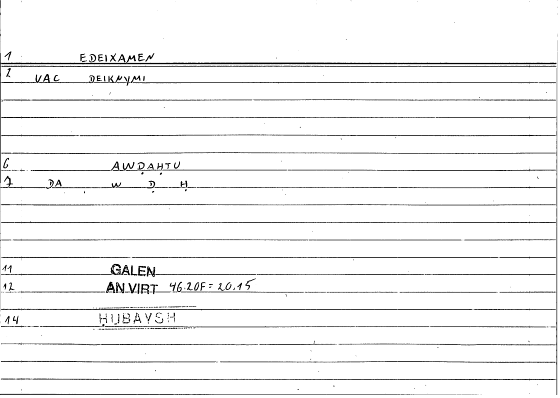 1 EDEIXAMEN
2 VAC DEIKNYMI
6 AWḌAḤTU
7 DA W Ḍ Ḥ
11 GALEN
12 AN.VIRT 46.20F = 20.15
14 ḤUBAYSH